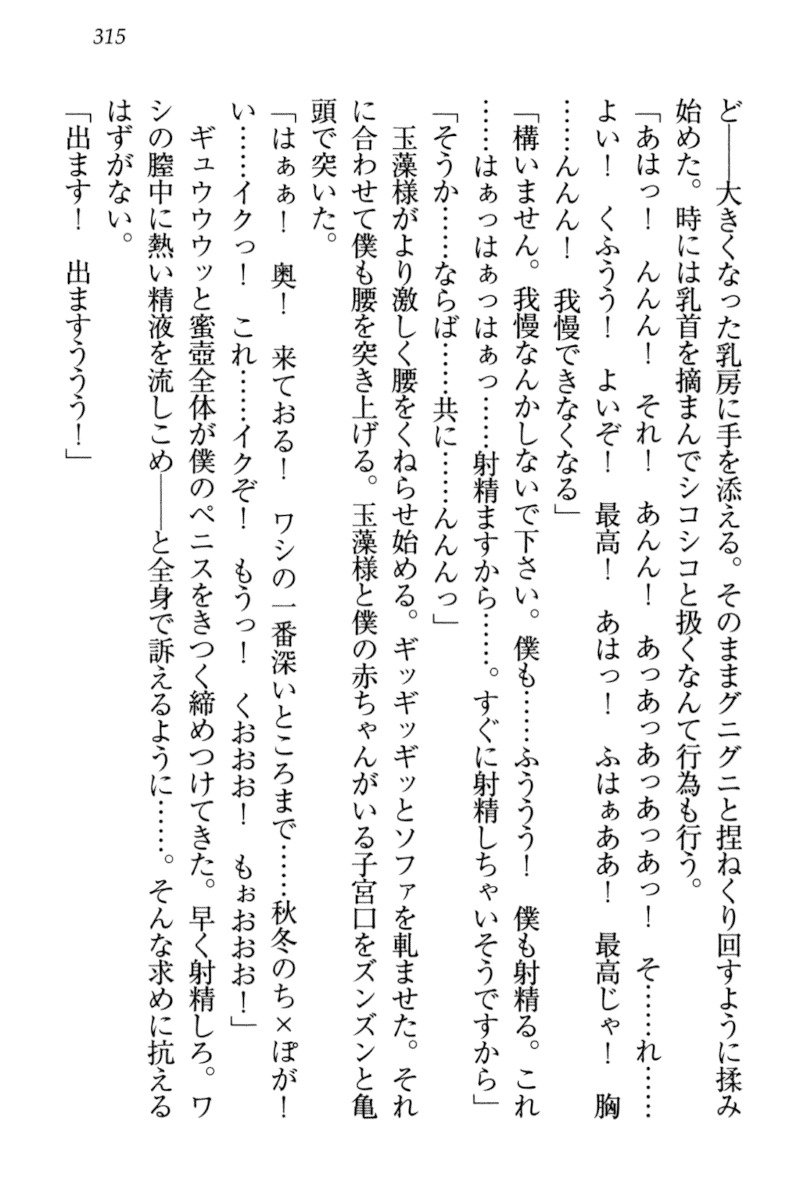 315
ど――大きくなった乳房に手を添える。そのままグニグニと捏ねくり回すように揉み
始めた。時には乳首を摘まんでシコシコと扱くなんて行為も行う。
「あはっ！　んんん！　それ！　あんん！　あっあっあっあっあっ！　そ……れ……
よい！　くふうう！　よいぞ！　最高！　あはっ！　ふはぁああ！　最高じゃ！　胸
……んんん！　我慢できなくなる」
「構いません。我慢なんかしないで下さい。僕も……ふううう！　僕も射精る。これ
……はぁっはぁっはぁっ……射精ますから……。すぐに射精しちゃいそうですから」
「そうか……ならば……共に……んんんっ」
　玉藻様がより激しく腰をくねらせ始める。ギッギッギッとソファを軋ませた。それ
に合わせて僕も腰を突き上げる。玉藻様と僕の赤ちゃんがいる子宮口をズンズンと亀
頭で突いた。
「はぁぁ！　奥！　来ておる！　ワシの一番深いところまで……秋冬のち×ぽが！
い……イクっ！　これ……イクぞ！　もうっ！　くおおお！　もぉおおお！」
　ギュウウウッと蜜壺全体が僕のペニスをきつく締めつけてきた。早く射精しろ。ワ
シの膣中に熱い精液を流しこめ――と全身で訴えるように……。そんな求めに抗える
はずがない。
「出ます！　出ますううう！」